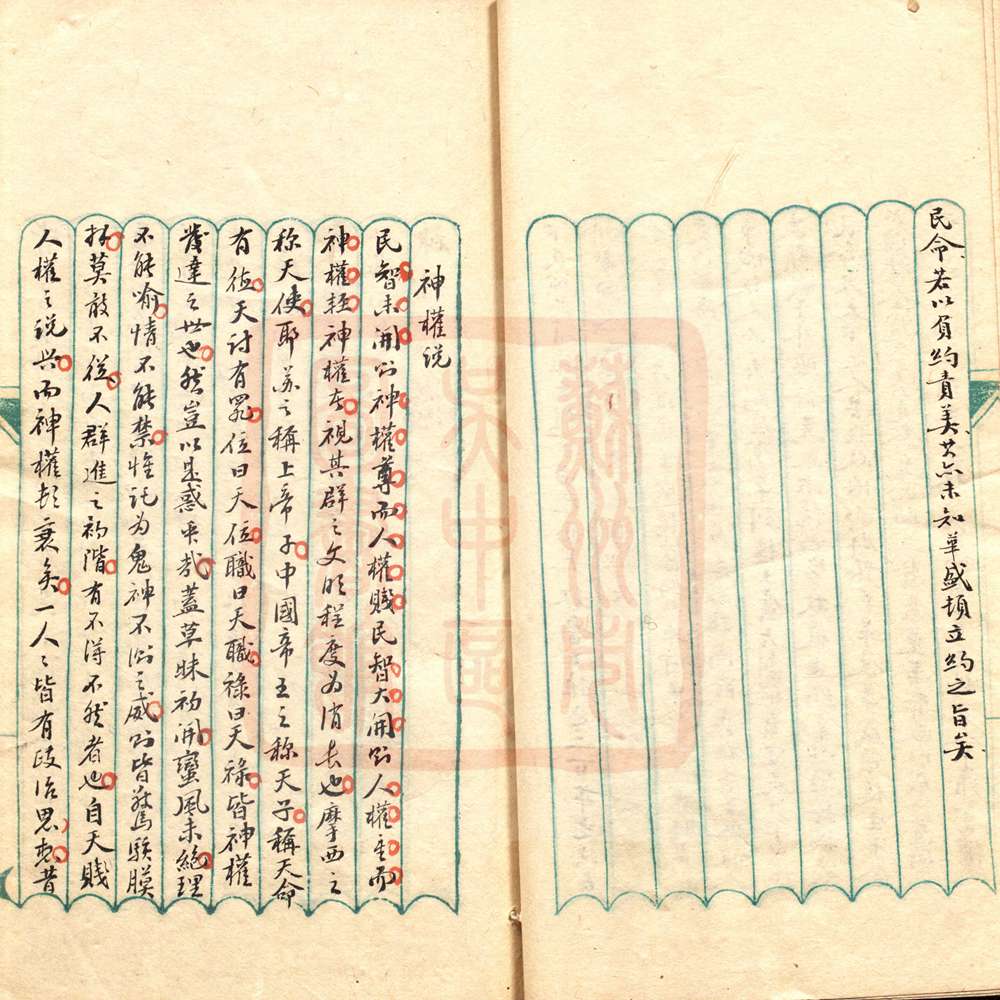 民命若以負約責美其亦未知華盛頓立約之旨矣
神權說
民智未開則神權尊而人權賤民智大開則人權重而
神權輕神權者視其群之文明程度為消長也摩西之
稱天使耶蘇之稱上帝子中國帝王之稱天子稱天命
有德天討有罪位曰天位職曰天職祿曰天祿皆神權
發達之世也然豈以是惑乎哉蓋草昧初開蠻風未絕理
不能喻情不能禁惟託為鬼神不測之威則皆驚駭膜
拜莫敢不從人群進之初階有不得不然者也自天賤
人權之說興而神權頓衰矣一人人皆有政治思想昔